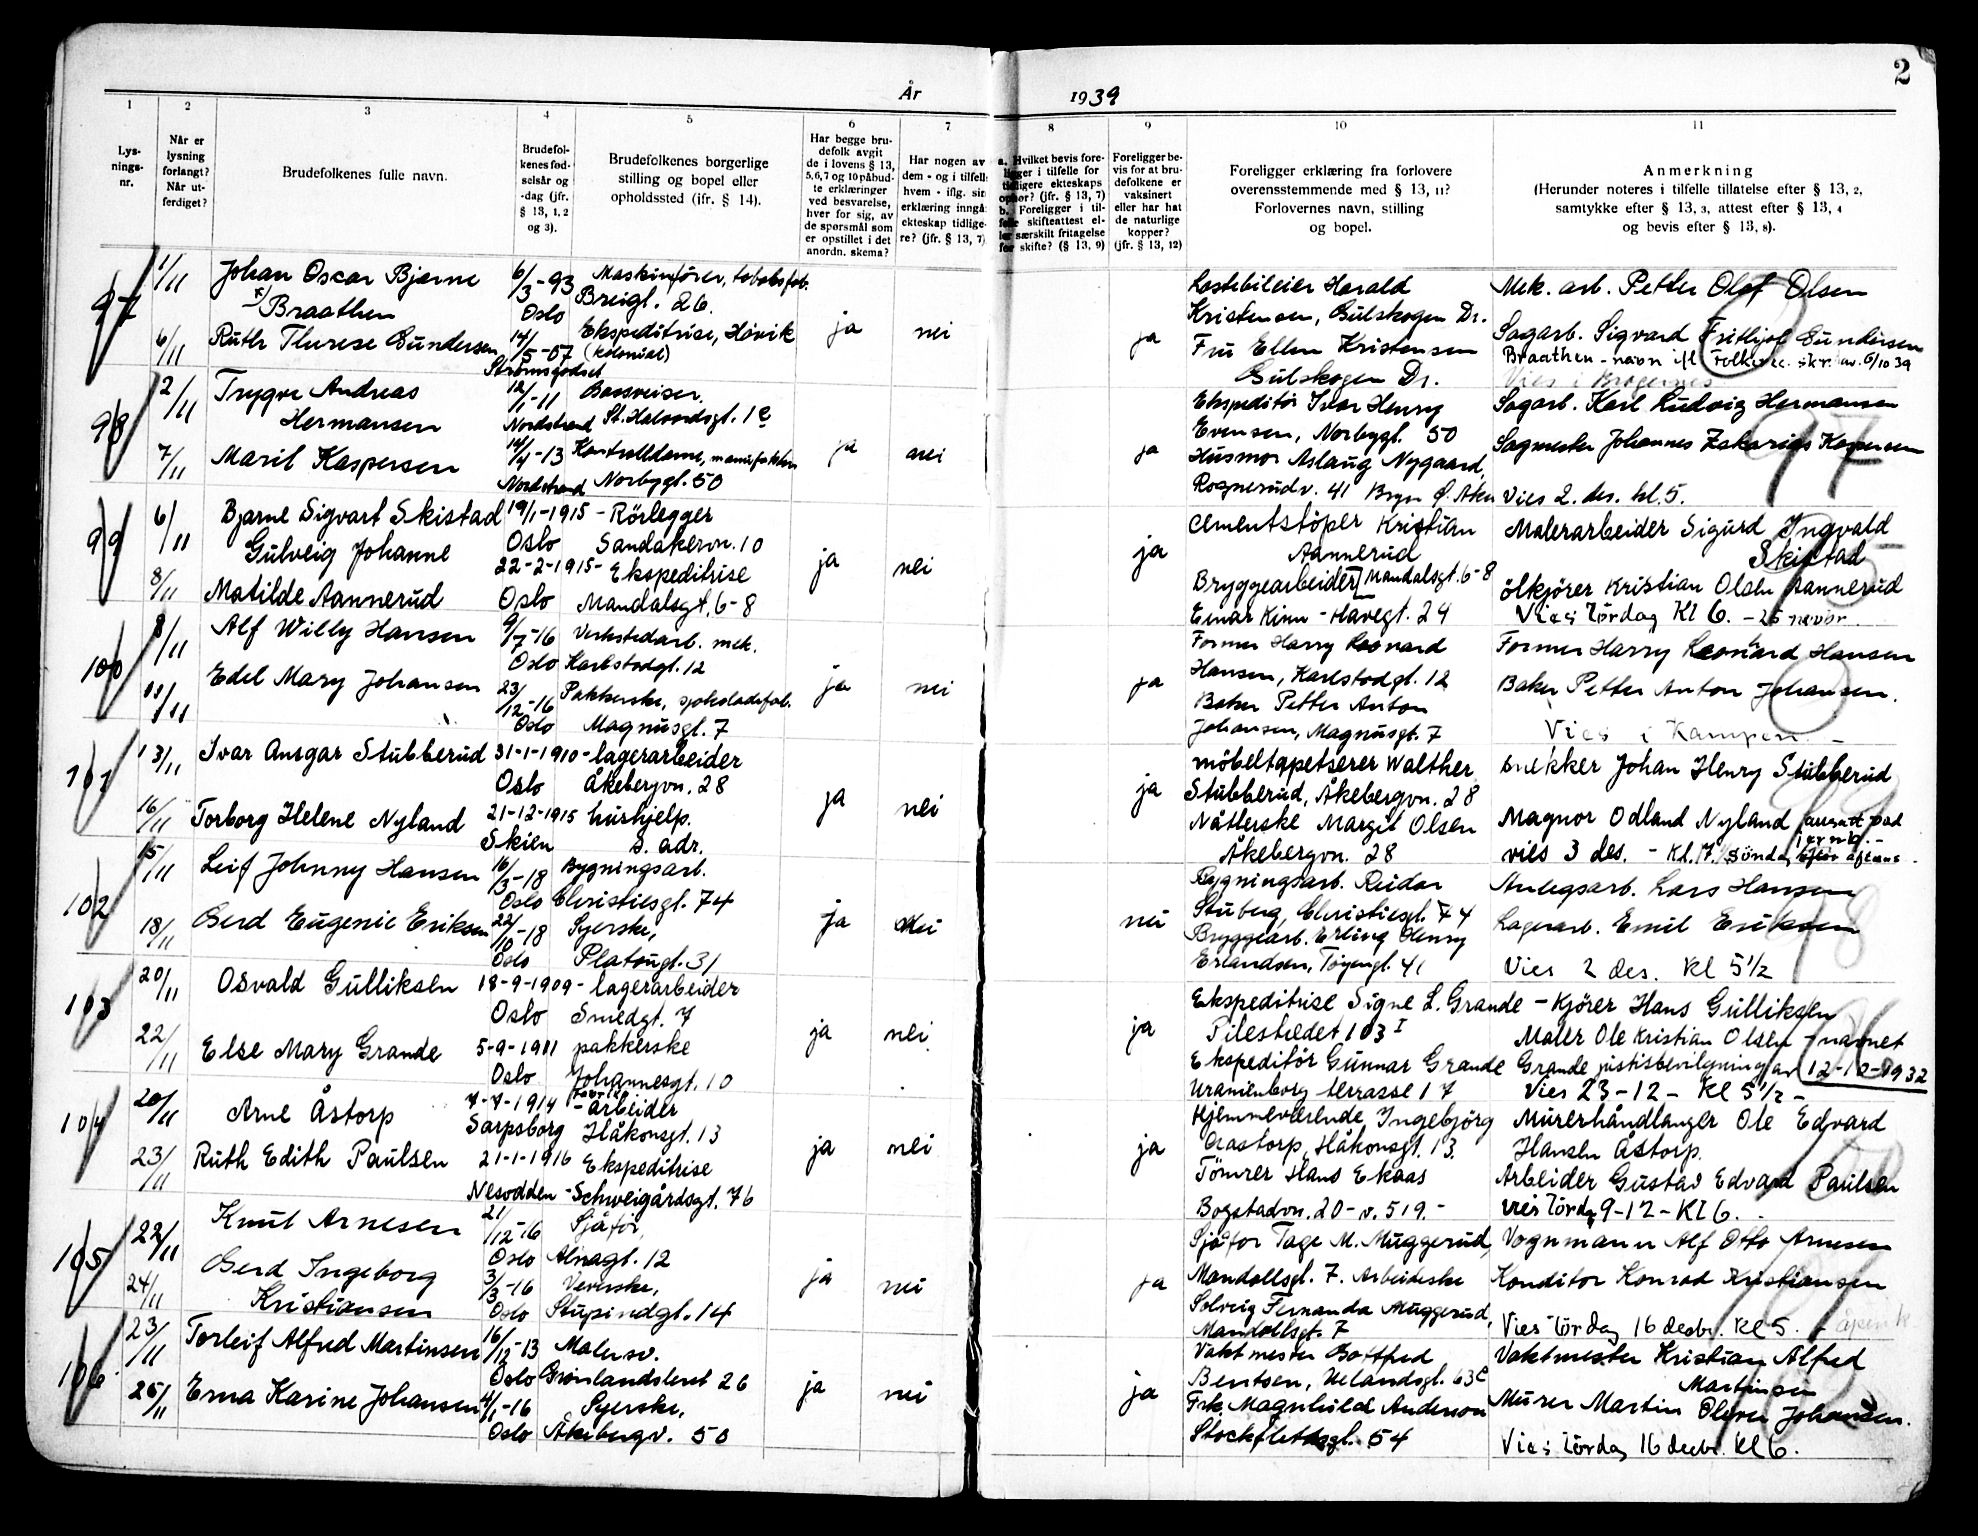 2
År 1939
1 2 3 4 5 6 7 8 9 10 11
Lys-
nings-
nr.
Når er
lysning
forlangt?
Når ut-
ferdiget?
Brudefolkenes fulle navn.
Brudefol-
kenes fød-
selsår og
-dag (jfr.
§ 13, 1, 2
og 3).
Brudefolkenes borgerlige
stilling og bopel eller
opholdssted (jfr. § 14).
Har begge bru-
defolk avgit
de i lovens § 13,
5,6,7 og 10 påbud-
te erklæringer
ved besvarelse,
hver for sig, av
de spørsmål som
er opstillet i det
anordn. skema?
Har nogen av
dem - og i tilfell
hvem - iflg. sin
erklæring inngå
ekteskap tidlige-
re? (jfr. § 13, 7)
a. Hvilket bevis fore-
ligger i tilfelle for
tidligere ekteskaps
ophør? (jfr. § 13, 7)
b. Foreligger i til-
felle skifteattest el-
ler særskilt fritagelse
for skifte? (§ 13, 9)
Foreligger be-
vis for at bru-
defolkene er
vaksinert
eller har hat
de naturlige
kopper?
(jfr. § 13, 12)
Foreligger erklæring fra forlovere
overensstemmende med § 13, 11?
Forlovernes navn, stilling
og bopel.
Anmerkning
(Herunder noteres i tilfelle tillatelse efter § 13, 2,
samtykke efter § 13, 3, attest efter § 13, 4
og bevis efter § 13, 8).
97 1/11 Johan Oscar Bjarne 6/3-93 Maskinfører, tobaksfab.
x) Braathen Oslo Breigt. 26.
6/11 Ruth Therese Gundersen 14/5-07 Ekspeditrise, Høvik
(kolonial)
Strømsgodset
ja nei ja
Lastebileier Harald
Kristensen, Gulskogen Dr.
Fru Ellen Kristensen
Gulskogen Dr.
Mek. arb. Petter Olaf Olsen
Sagarb. Sigvard Fritljof Gundersen
Braathen - navn ifl Folkereg. skr. av. 6/10 39
Vies i Bragernes
98 2/11 Trygve Andreas 12/1-11 Bassveiser.
Hermansen Nordstrand St. Halvardsgt. 1e
7/11 Maril Kaspersen 14/4-13 Kontrolldame, manufaktur
Nordstrand Norbygt. 50
ja nei ja
Ekspeditør Ivar Henry
Evensen, Norbygt. 50
Husmor Aslaug Nygaard,
Rognerudv. 41 Bryn Ø. Aker
Sagarb. Karl Ludvig Hermansen
Sagmester Johannes Zakarias Kaspersen
Vies 2. des. kl. 5.
99 6/11 Bjarne Sigvart Skistad 19/1-1915 - Rörlegger
Oslo Sandakervn. 10
Gulveig Johanne 22-2-1915 - Ekspeditrise
8/11 Matilde Aannerud Oslo Mandalsgt. 6-8
ja nei ja
Cementstöper Kristian
Aannerud
Bryggearbeider Mandalsgt. 6-8
Einar Kinn - Havegt. 24
Malerarbeider Sigurd Ingvald
Skistad
ölkjörer Kristian Olsen Aannerud
Vies Lördag Kl 6. - 25 novbr.
100 8/11 Alf Willy Hansen 9/7-16 Verkstedarb. mek.
Oslo Karlstadgt. 12
/11 Edel Mary Johansen 23/12-16 Pakkerske, sjokoladefab.
Oslo Magnusgt. 7
ja nei ja
Former Harry Leonard
Hansen, Karlstadgt. 12
Baker Petter Anton
Johansen, Magnusgt. 7
Former Harry Leonard Hansen
Baker Petter Anton Johansen.
Vies i Kampen. -
101 13/11 Ivar Ansgar Stubberud 31-1-1910 - lagerarbeider
Oslo Åkebergvn. 28
16/11 Torborg Helene Nyland 21-12-1915 hushjelp.
Skien s. adr.
ja nei ja
möbeltapetserer Walther
Stubberud, Åkebergvn. 28
Nåtlerske Margit Olsen
Åkebergvn. 28
snekker Johan Henry Stubberud
Magnor Odland Nyland
vies 3 des. - kl. 17. söndag
102 15/11 Leif Johnny Hansen 16/3-18 Bygningsarb.
Oslo Christiesgt. 74
18/11 Gerd Eugenie Eriksen 22/10-18 Syerske,
Oslo Platougt. 31
ja nei nei
Bygningsarb. Reidar
Stuberg, Christiesgt. 74
Bryggearb. Erling Henry
Erlandsen, Tøyengt. 41
Anlegsarb. Lars Hansen
Lagerarb. Emil Eriksen
Vies 2 des. Kl 5 1/2
103 20/11 Osvald Gulliksen 18-9-1909 - lagerarbeider
Oslo Smedgt. 7
22/11 Else Mary Grande 5-9-1911 pakkerske
Oslo Johannesgt. 10
ja nei ja
Ekspeditrise Signe L. Grande
Pilestredet 103 I
Ekspeditör Gunnar Grande
Uranienborg terrasse 17
- Kjörer Hans Gulliksen
Maler Ole Kristian Olsen - navnet
Grande justisbevilgning av 12-10-1932
Vies 23-12- Kl 5 1/2 -
104 20/11 Arne Åstorp 7-7-1914 -arbeider
Sarpsborg Håkonsgt. 13
23/11 Ruth Edith Paulsen 21-1-1916 Ekspeditrise
Nesodden - Schweigårdsgt. 76
ja nei ja
Hjemmeværende Ingebjörg
Aastorp, Håkonsgt. 13.
Tömrer Hans Ekaas
Bogstadvn. 20 - v. 519. -
Murerhåndlanger Ole Edvard
Hansen Åstorp.
Arbeider Gustav Edvard Paulsen
vies Lörda 9-12- Kl 6.
105 22/11 Knut Arnesen 21/12-16 Sjåfør,
Oslo Alnagt. 12
24/11 Gerd Ingeborg 3/3-16 Veverske,
Kristiansen Oslo Stupindgt. 14
ja nei ja
Sjåfør Tage M. Muggerud,
Mandallsgt. 7. Arbeiderske
Solveig Fernanda Muggerud,
Mandallsgt. 7
Vognmann Alf Otto Arnesen
Konditor Konrad Kristiansen
Vies Lördag 16 decbr. kl 5.
106 23/11 Torleif Alfred Martinsen 16/12-13 Malersv.
Oslo Grønlandsleret 26
25/11 Erna Karine Johansen 4/1-16 Syerske,
Oslo Åkebergv. 50
ja nei ja
Vaktmester Gottfred
Bentsen, Uelandsgt. 63c
Frk. Magnhild Anderson
Stockfletdsgt. 54
Vaktmester Kristian Alfred
Martinsen
Murer Martin Oliver Johansen.
Vies Lördag 16 decbr. kl 6.